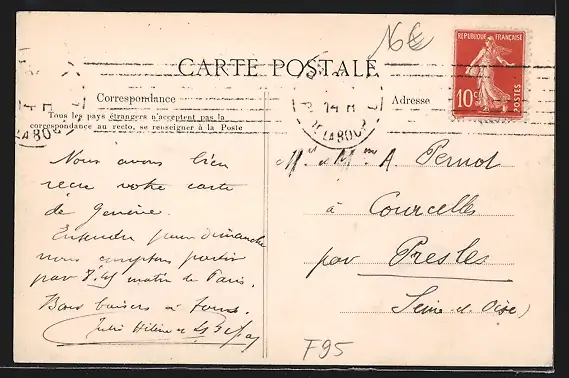 16€
CARTE POSTALE
REPUBLIQUE FRANÇAISE
10c
POSTES
Correspondance
Adresse
Tous les pays étrangers n'acceptent pas la
correspondance au recto, se renseigner à la Poste
14 H
Nous avons bien
recu votre carte
de Genève.
Entendu pour Dimanche
nous comptons partir
par 7.45 matin de Paris.
Bons baisers à tous.
Mr et Mme A Pernot
à Courcelles
par Presles
Seine-et-Oise)
F95